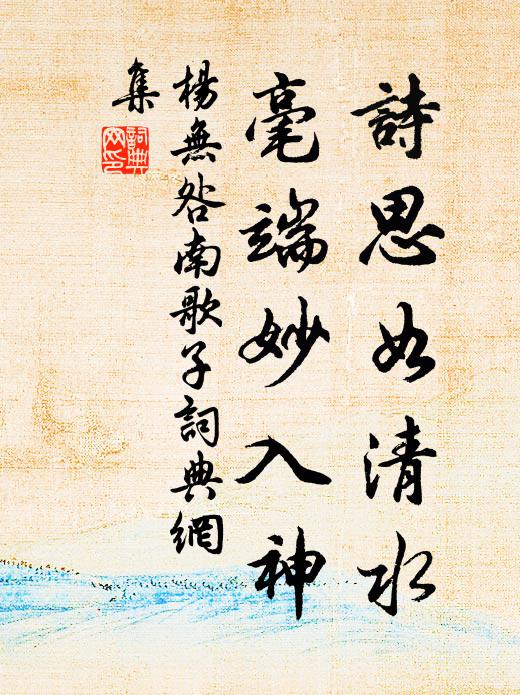 詩思如清水
毫端妙入神
楊無咎南歌子詞典網
集
詞典網印